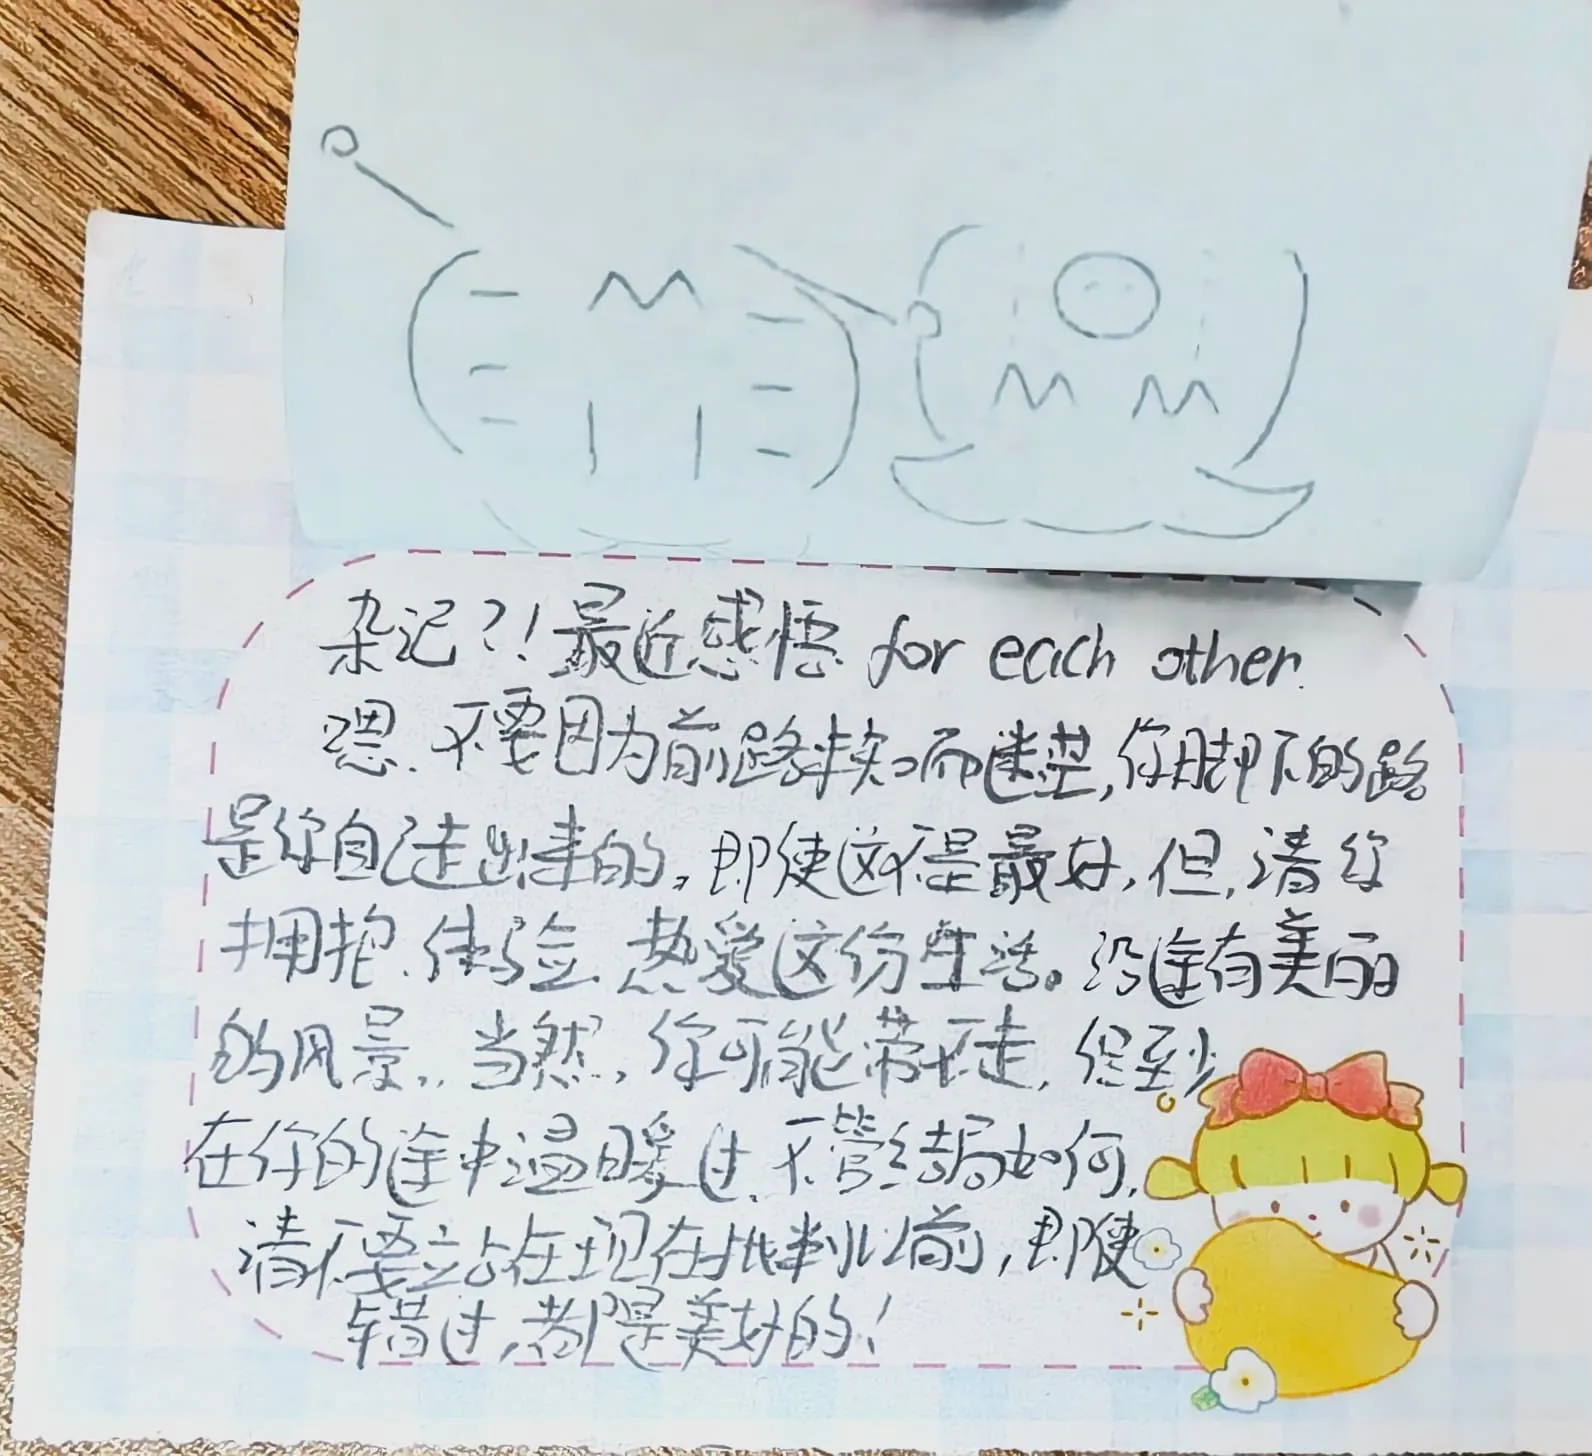 杂记？！最近感悟 for each other.
嗯.不要因为前路未知而迷茫,你脚下的路
是你自己走出来的,即使这不是最好,但,请你
拥抱.体验.热爱这份生活。沿途有美丽
的风景.,当然,你可能带不走,但至少
在你的途中温暖过.不管结局如何,
请不要站在现在批判以前,即使
错过,都是美好的!